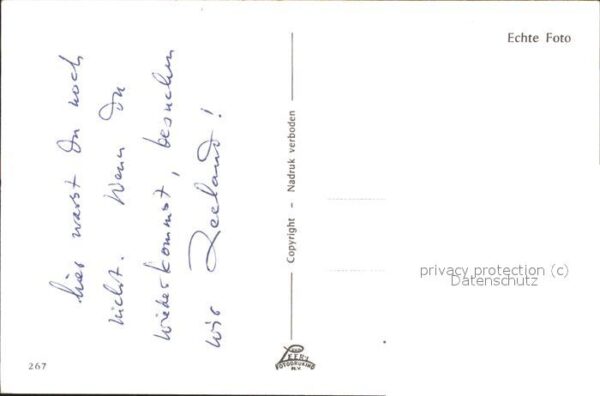 hier warst Du noch
nicht. Wenn Du
wiederkommst, besuchen
wir Zeeland!
Echte Foto
Copyright - Nadruk verboden
privacy protection (c)
Datenschutz
267
FOTODRUKIND
N.V.